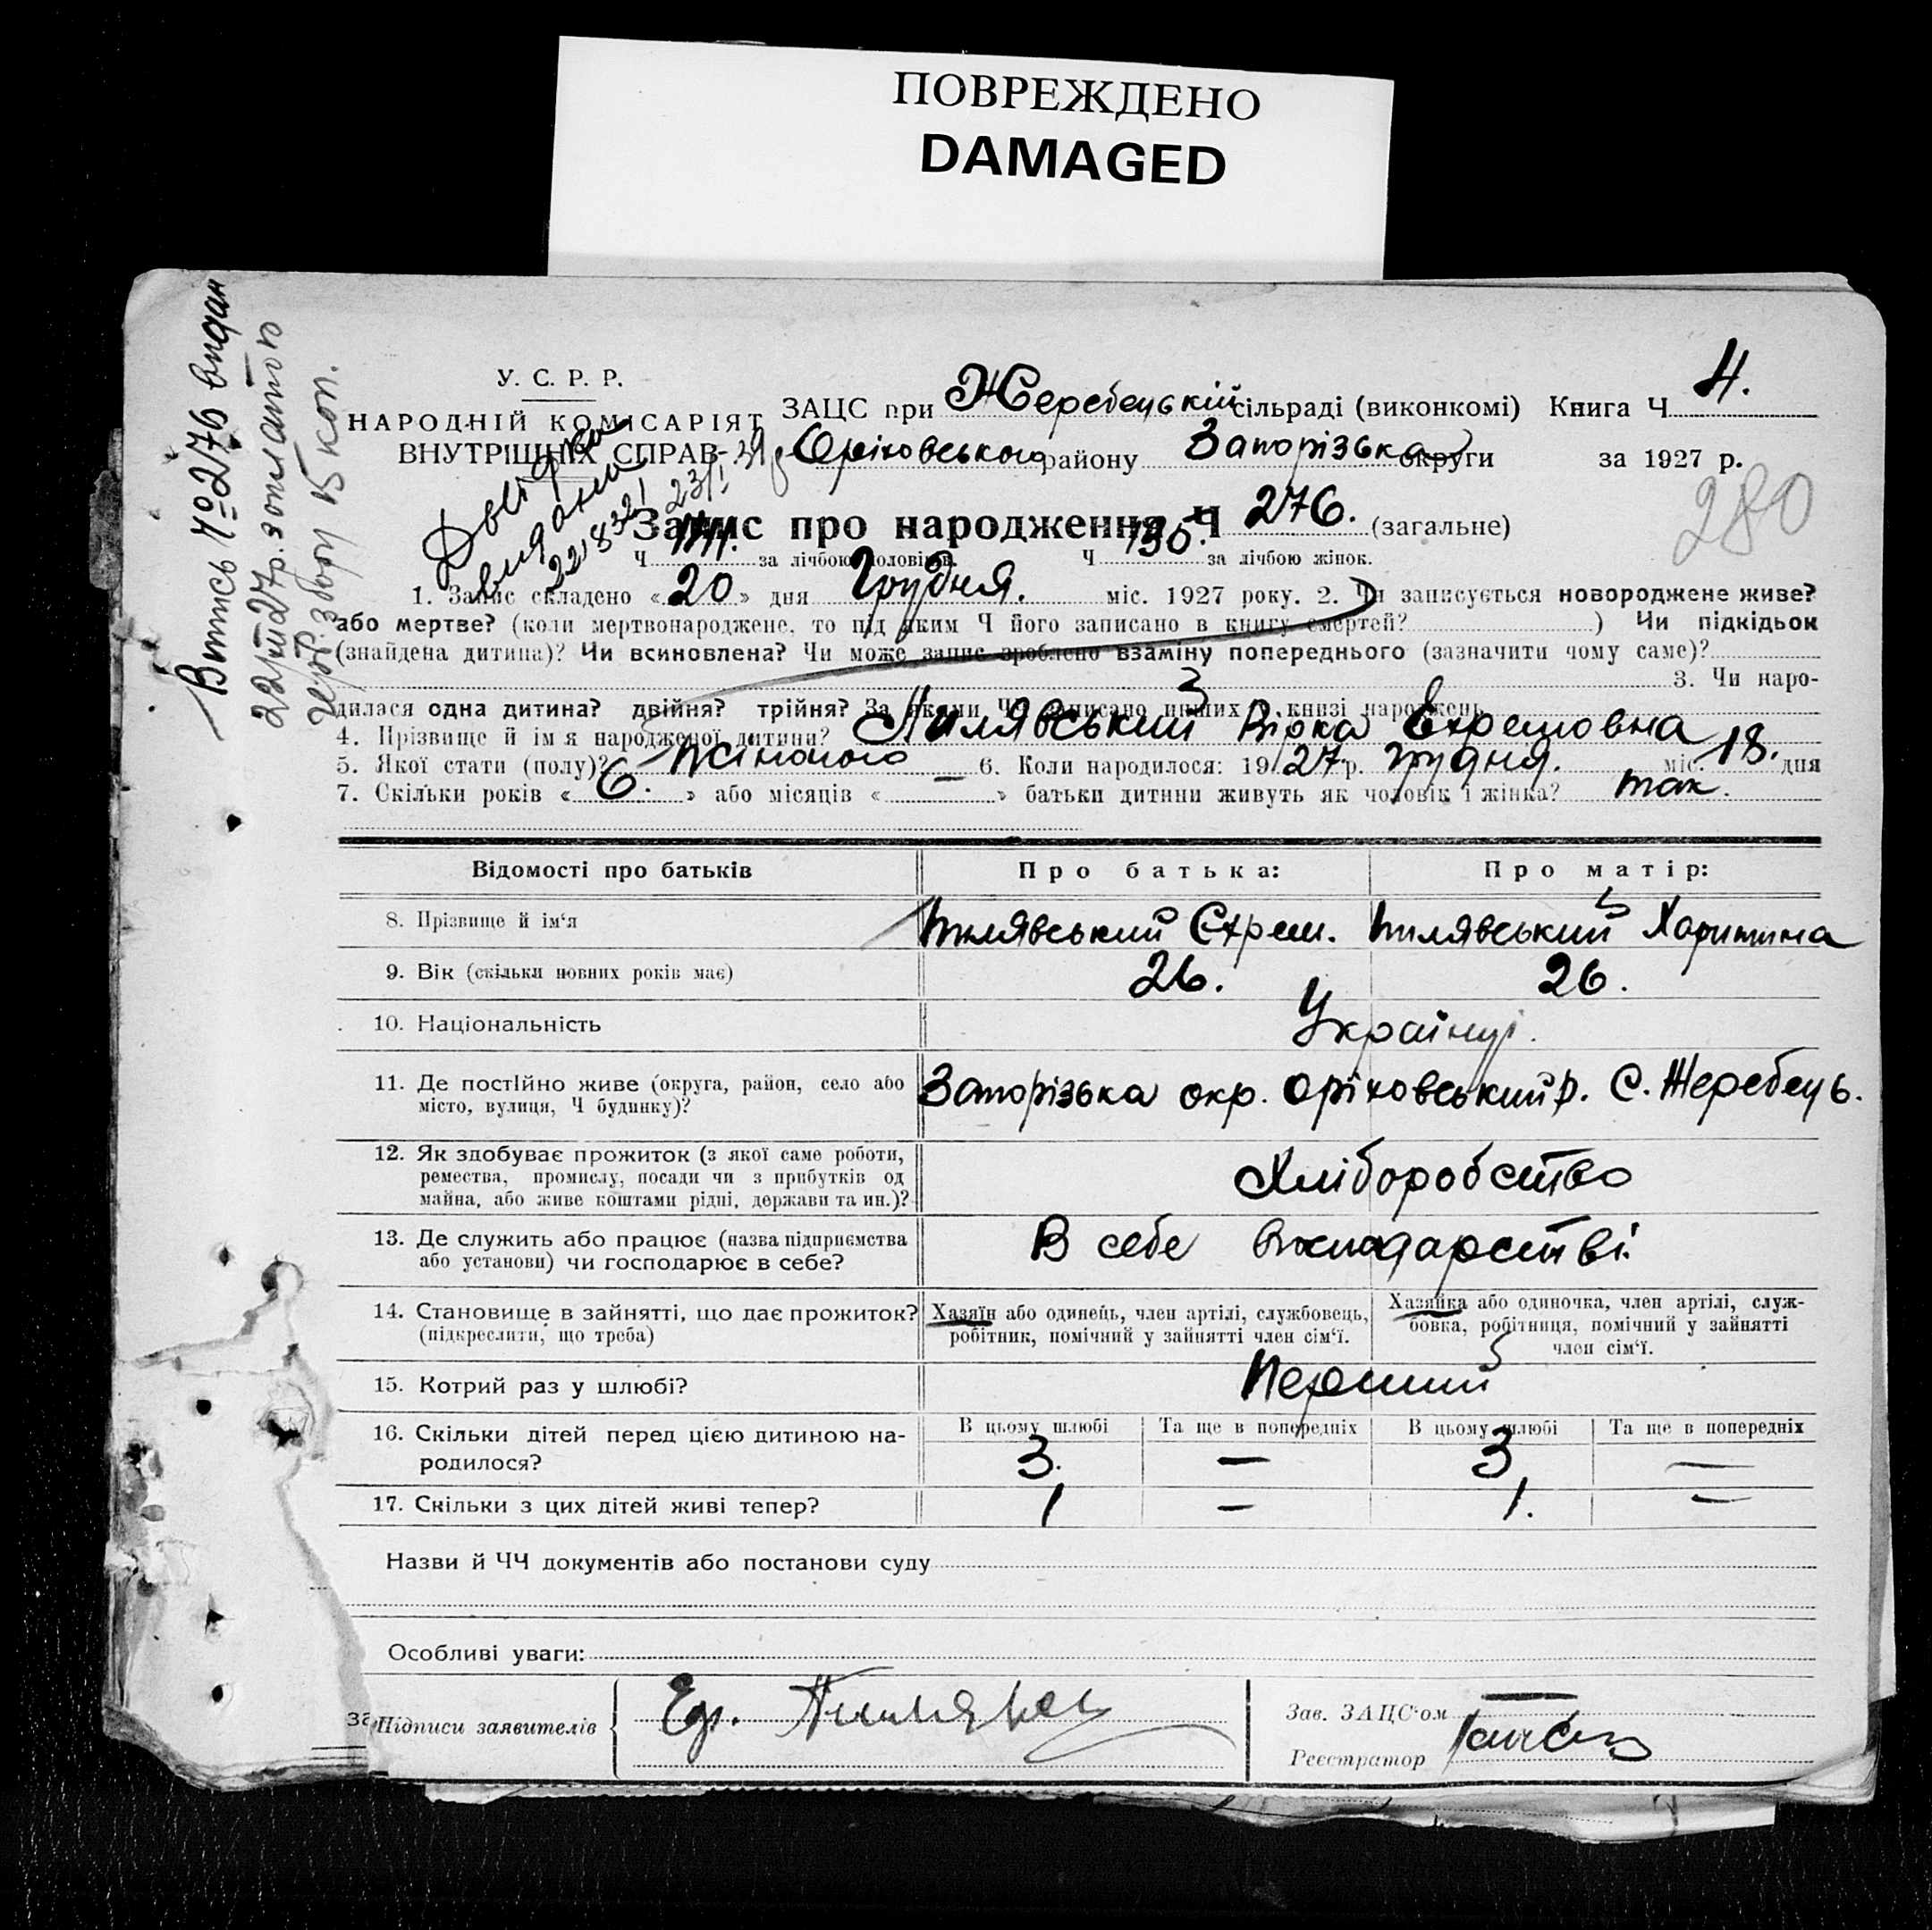 ПОВРЕЖДЕНО
DAMAGED
Випись № 276 видан
22/XII 27р. з оплатою
герб. збору 15 коп.
У. С. Р. Р.
НАРОДНІЙ КОМІСАРІЯТ
ВНУТРІШНІХ СПРАВ
Довідка
видана
ЗАЦС при Жеребецькій сільраді (виконкомі) Книга Ч 4.
Оріховського району Запорізька округи за 1927 р.
280
Запис про народження Ч 276. (загальне)
Ч за лічбою чоловіків. Ч 135. за лічбою жінок.
1. Запис складено « 20 » дня Грудня. міс. 1927 року. 2. Чи записується новороджене живе?
або мертве? (коли мертвонароджене, то під яким Ч його записано в книгу смертей? ) Чи підкідьок
(знайдена дитина)? Чи всиновлена? Чи може запис зроблено взаміну попереднього (зазначити чому саме)?
3. Чи наро-
дилася одна дитина? двійня? трійня? За якими ЧЧ записано инших в книзі народжень
4. Прізвище й ім'я народженої дитини? Пилявський Вірка Ехремовна
5. Якої стати (полу)? жіночого 6. Коли народилося: 1927 р. грудня. міс. 18. дня
7. Скільки років « 6. » або місяців « — » батьки дитини живуть як чоловік і жінка? так.
Відомості про батьків Про батька: Про матір:
8. Прізвище й ім'я Пилявський Єхрем. Пилявський Харитина
9. Вік (скільки повних років має) 26. 26.
10. Національність Українці.
11. Де постійно живе (округа, район, село або Запорізька окр. Оріховський р. С. Жеребець.
місто, вулиця, Ч будинку)?
12. Як здобуває прожиток (з якої саме роботи,
ремества, промислу, посади чи з прибутків од Хліборобство
майна, або живе коштами рідні, держави та ин.)?
13. Де служить або працює (назва підприємства В себе в господарстві.
або установи) чи господарює в себе?
14. Становище в зайнятті, що дає прожиток? Хазяїн або одинець, член артілі, службовець, Хазяйка або одиночка, член артілі, служ-
(підкреслити, що треба) робітник, помічний у зайнятті член сім'ї. бовка, робітниця, помічний у зайнятті
член сім'ї.
15. Котрий раз у шлюбі? Перший
16. Скільки дітей перед цією дитиною на- В цьому шлюбі Та ще в попередніх В цьому шлюбі Та ще в попередніх
родилося? 3. — 3 —
17. Скільки з цих дітей живі тепер? 1 — 1. —
Назви й ЧЧ документів або постанови суду
Особливі уваги:
Підписи заявителів
Зав. ЗАЦС'ом —
Реєстратор